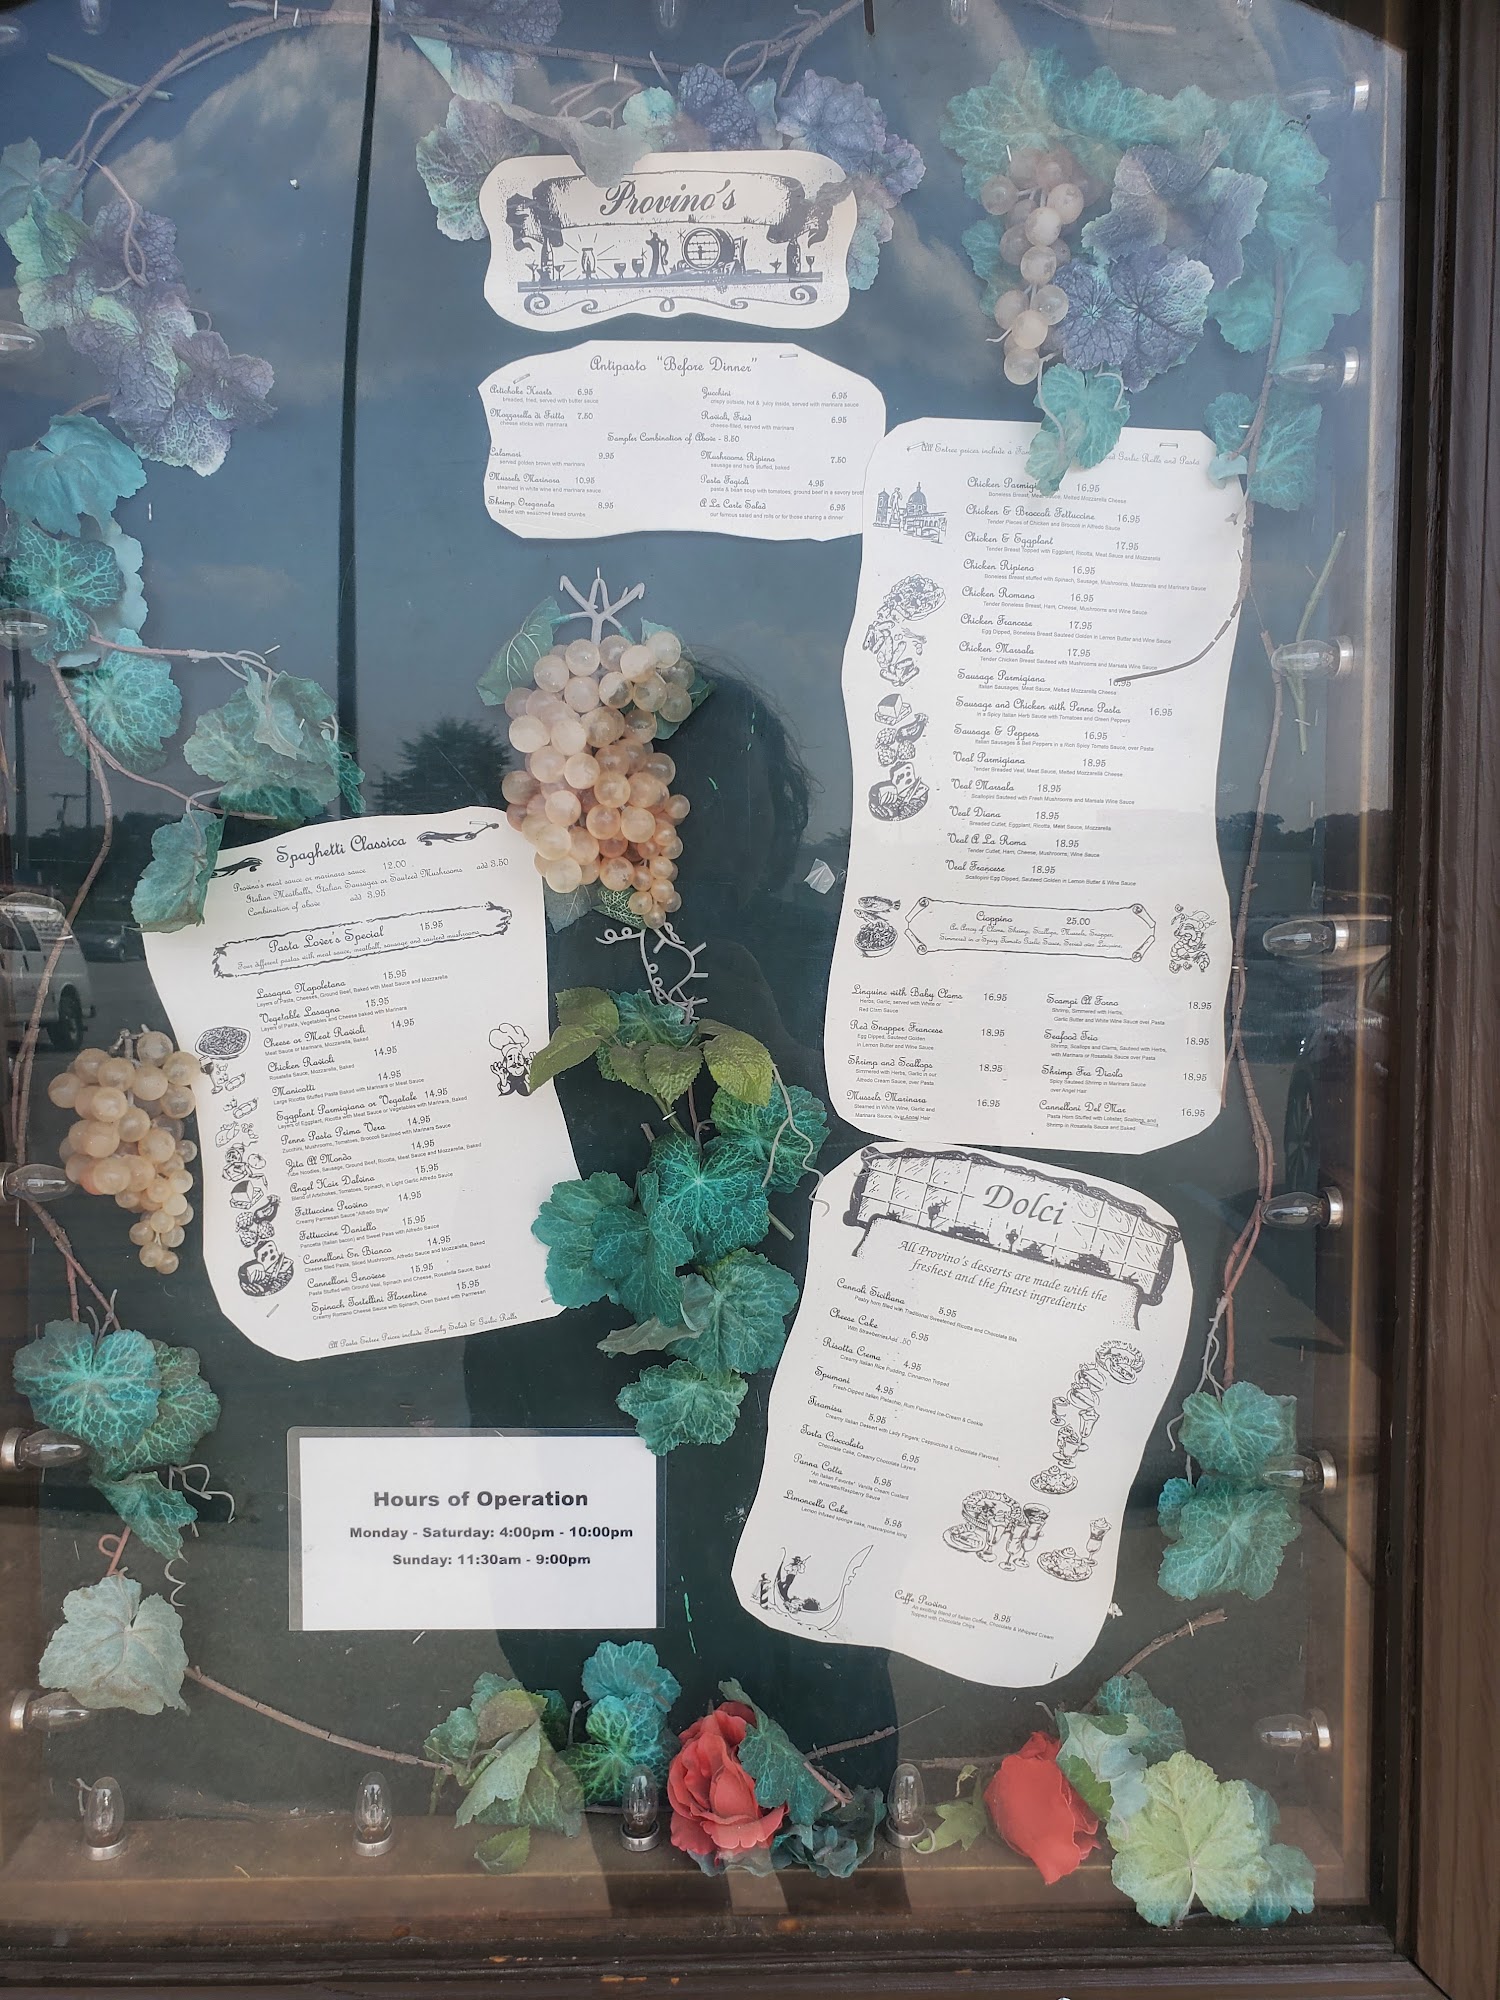 Provino's
Antipasto "Before Dinner"
Artichoke Hearts 6.95
breaded, fried, served with butter sauce
Mozzarella di Fritto 7.50
cheese sticks with marinara
Zucchini 6.95
crispy outside, hot & juicy inside, served with marinara sauce
Ravioli, Fried 6.95
cheese-filled, served with marinara
Sampler Combination of Above - 8.50
Calamari 9.95
served golden brown with marinara
Mussels Marinara 10.95
steamed in white wine and marinara sauce
Shrimp Oreganata 8.95
baked with seasoned bread crumbs
Mushrooms Ripieno 7.50
sausage and herb stuffed, baked
Pasta Fagioli 4.95
pasta & bean soup with tomatoes, ground beef in a savory brot
A La Carte Salad 6.95
our famous salad and rolls or for those sharing a dinner
All Entree prices include a Garlic Rolls and Pasta
Chicken Parmigi 16.95
Boneless Breast, Meat Sauce, Melted Mozzarella Cheese
Chicken & Broccoli Fettuccine 16.95
Tender Pieces of Chicken and Broccoli in Alfredo Sauce
Chicken & Eggplant 17.95
Tender Breast Topped with Eggplant, Ricotta, Meat Sauce and Mozzarella
Chicken Ripieno 16.95
Boneless Breast stuffed with Spinach, Sausage, Mushrooms, Mozzarella and Marinara Sauce
Chicken Romano 16.95
Tender Boneless Breast, Ham, Cheese, Mushrooms and Wine Sauce
Chicken Francese 17.95
Egg Dipped, Boneless Breast Sauteed Golden in Lemon Butter and Wine Sauce
Chicken Marsala 17.95
Tender Chicken Breast Sauteed with Mushrooms and Marsala Wine Sauce
Sausage Parmigiana 16.95
Italian Sausages, Meat Sauce, Melted Mozzarella Cheese
Sausage and Chicken with Penne Pasta 16.95
in a Spicy Italian Herb Sauce with Tomatoes and Green Peppers
Sausage & Peppers 16.95
Italian Sausages & Bell Peppers in a Rich Spicy Tomato Sauce, over Pasta
Veal Parmigiana 18.95
Tender Breaded Veal, Meat Sauce, Melted Mozzarella Cheese
Veal Marsala 18.95
Scallopini Sauteed with Fresh Mushrooms and Marsala Wine Sauce
Veal Diana 18.95
Breaded Cutlet, Eggplant, Ricotta, Meat Sauce, Mozzarella
Veal A La Roma 18.95
Tender Cutlet, Ham, Cheese, Mushrooms, Wine Sauce
Veal Francese 18.95
Scallopini Egg Dipped, Sauteed Golden in Lemon Butter & Wine Sauce
Cioppino 25.00
An Array of Clams, Shrimp, Scallops, Mussels, Snapper,
Simmered in a Spicy Tomato Garlic Sauce, Served over Linguine.
Linguine with Baby Clams 16.95
Herbs, Garlic, served with White or
Red Clam Sauce
Red Snapper Francese 18.95
Egg Dipped, Sauteed Golden
in Lemon Butter and Wine Sauce
Shrimp and Scallops 18.95
Simmered with Herbs, Garlic in our
Alfredo Cream Sauce, over Pasta
Mussels Marinara 16.95
Steamed in White Wine, Garlic and
Marinara Sauce, over Angel Hair
Scampi Al Forno 18.95
Shrimp, Simmered with Herbs,
Garlic Butter and White Wine Sauce over Pasta
Seafood Trio 18.95
Shrimp, Scallops and Clams, Sauteed with Herbs,
with Marinara or Rosatella Sauce over Pasta
Shrimp Fra Diavlo 18.95
Spicy Sauteed Shrimp in Marinara Sauce
over Angel Hair
Cannelloni Del Mar 16.95
Pasta Horn Stuffed with Lobster, Scallops, and
Shrimp in Rosatella Sauce and Baked
Spaghetti Classica
Provino's meat sauce or marinara sauce 12.00
Italian Meatballs, Italian Sausages or Sauteed Mushrooms add 3.50
Combination of above add 3.95
Pasta Lover's Special 15.95
Four different pastas with meat sauce, meatball, sausage and sauteed mushrooms
Lasagna Napoletana 15.95
Layers of Pasta, Cheeses, Ground Beef, Baked with Meat Sauce and Mozzarella
Vegetable Lasagna 15.95
Layers of Pasta, Vegetables and Cheese baked with Marinara
Cheese or Meat Ravioli 14.95
Meat Sauce or Marinara, Mozzarella, Baked
Chicken Ravioli 14.95
Rosatella Sauce, Mozzarella, Baked
Manicotti 14.95
Large Ricotta Stuffed Pasta Baked with Marinara or Meat Sauce
Eggplant Parmigiana or Vegatale 14.95
Layers of Eggplant, Ricotta with Meat Sauce or Vegetables with Marinara, Baked
Penne Pasta Prima Vera 14.95
Zucchini, Mushrooms, Tomatoes, Broccoli Sauteed with Marinara Sauce
Zita Al Mondo 14.95
Tube Noodles, Sausage, Ground Beef, Ricotta, Meat Sauce and Mozzarella, Baked
Angel Hair Dalvina 15.95
Blend of Artichokes, Tomatoes, Spinach, in Light Garlic Alfredo Sauce
Fettuccine Provino 14.95
Creamy Parmesan Sauce "Alfredo Style"
Fettuccine Daniella 15.95
Pancetta (Italian bacon) and Sweet Peas with Alfredo Sauce
Cannelloni En Bianco 14.95
Cheese filled Pasta, Sliced Mushrooms, Alfredo Sauce and Mozzarella, Baked
Cannelloni Genovese 15.95
Pasta Stuffed with Ground Veal, Spinach and Cheese, Rosatella Sauce, Baked
Spinach Tortellini Florentine 15.95
Creamy Romano Cheese Sauce with Spinach, Oven Baked with Parmesan
All Pasta Entree Prices include Family Salad & Garlic Rolls
Dolci
All Provino's desserts are made with the
freshest and the finest ingredients
Cannoli Siciliana 5.95
Pastry horn filled with Traditional Sweetened Ricotta and Chocolate Bits
Cheese Cake 6.95
With Strawberries Add .50
Risotta Crema 4.95
Creamy Italian Rice Pudding, Cinnamon Topped
Spumoni 4.95
Fresh-Dipped Italian Pistachio, Rum Flavored Ice-Cream & Cookie
Tiramisu 5.95
Creamy Italian Dessert with Lady Fingers, Cappuccino & Chocolate Flavored
Torta Cioccolato 6.95
Chocolate Cake, Creamy Chocolate Layers
Panna Cotta 5.95
"An Italian Favorite" Vanilla Cream Custard
with Amaretto/Raspberry Sauce
Limoncello Cake 5.95
Lemon infused sponge cake, mascarpone icing
Caffe Provino 3.95
An exciting Blend of Italian Coffee, Chocolate & Whipped Cream
Topped with Chocolate Chips
Hours of Operation
Monday - Saturday: 4:00pm - 10:00pm
Sunday: 11:30am - 9:00pm